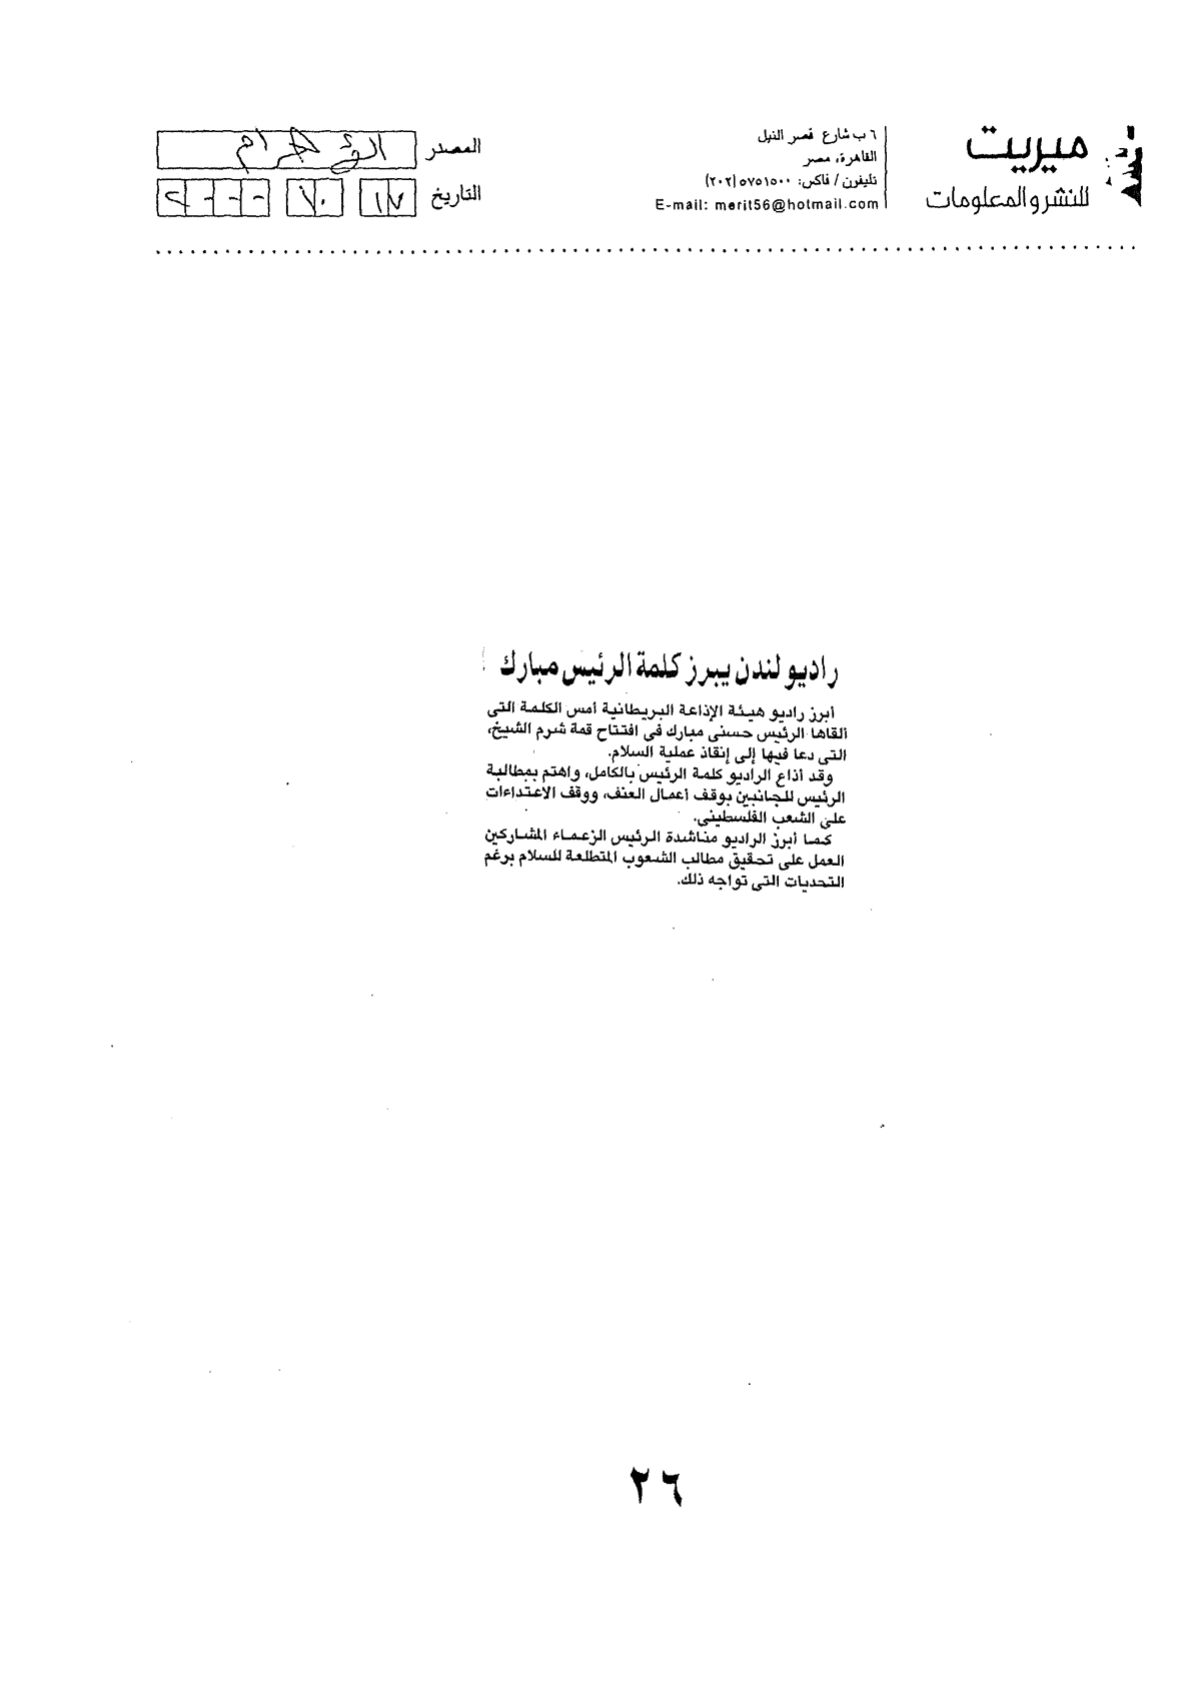 ميريت
للنشر والمعلومات
٦ ب شارع قصر النيل
القاهرة، مصر
تليفون / فاكس: ٥٧٥١٥٠٠ (٢٠٢)
E-mail: merit56@hotmail.com
المصدر الأهرام
التاريخ ١٧ ١٠ ٢٠٠٠
راديو لندن يبرز كلمة الرئيس مبارك
أبرز راديو هيئة الإذاعة البريطانية أمس الكلمة التى
ألقاها الرئيس حسنى مبارك فى افتتاح قمة شرم الشيخ،
التى دعا فيها إلى إنقاذ عملية السلام.
وقد أذاع الراديو كلمة الرئيس بالكامل، واهتم بمطالبة
الرئيس للجانبين بوقف أعمال العنف، ووقف الاعتداءات
على الشعب الفلسطينى.
كما أبرز الراديو مناشدة الرئيس الزعماء المشاركين
العمل على تحقيق مطالب الشعوب المتطلعة للسلام برغم
التحديات التى تواجه ذلك.
٢٦